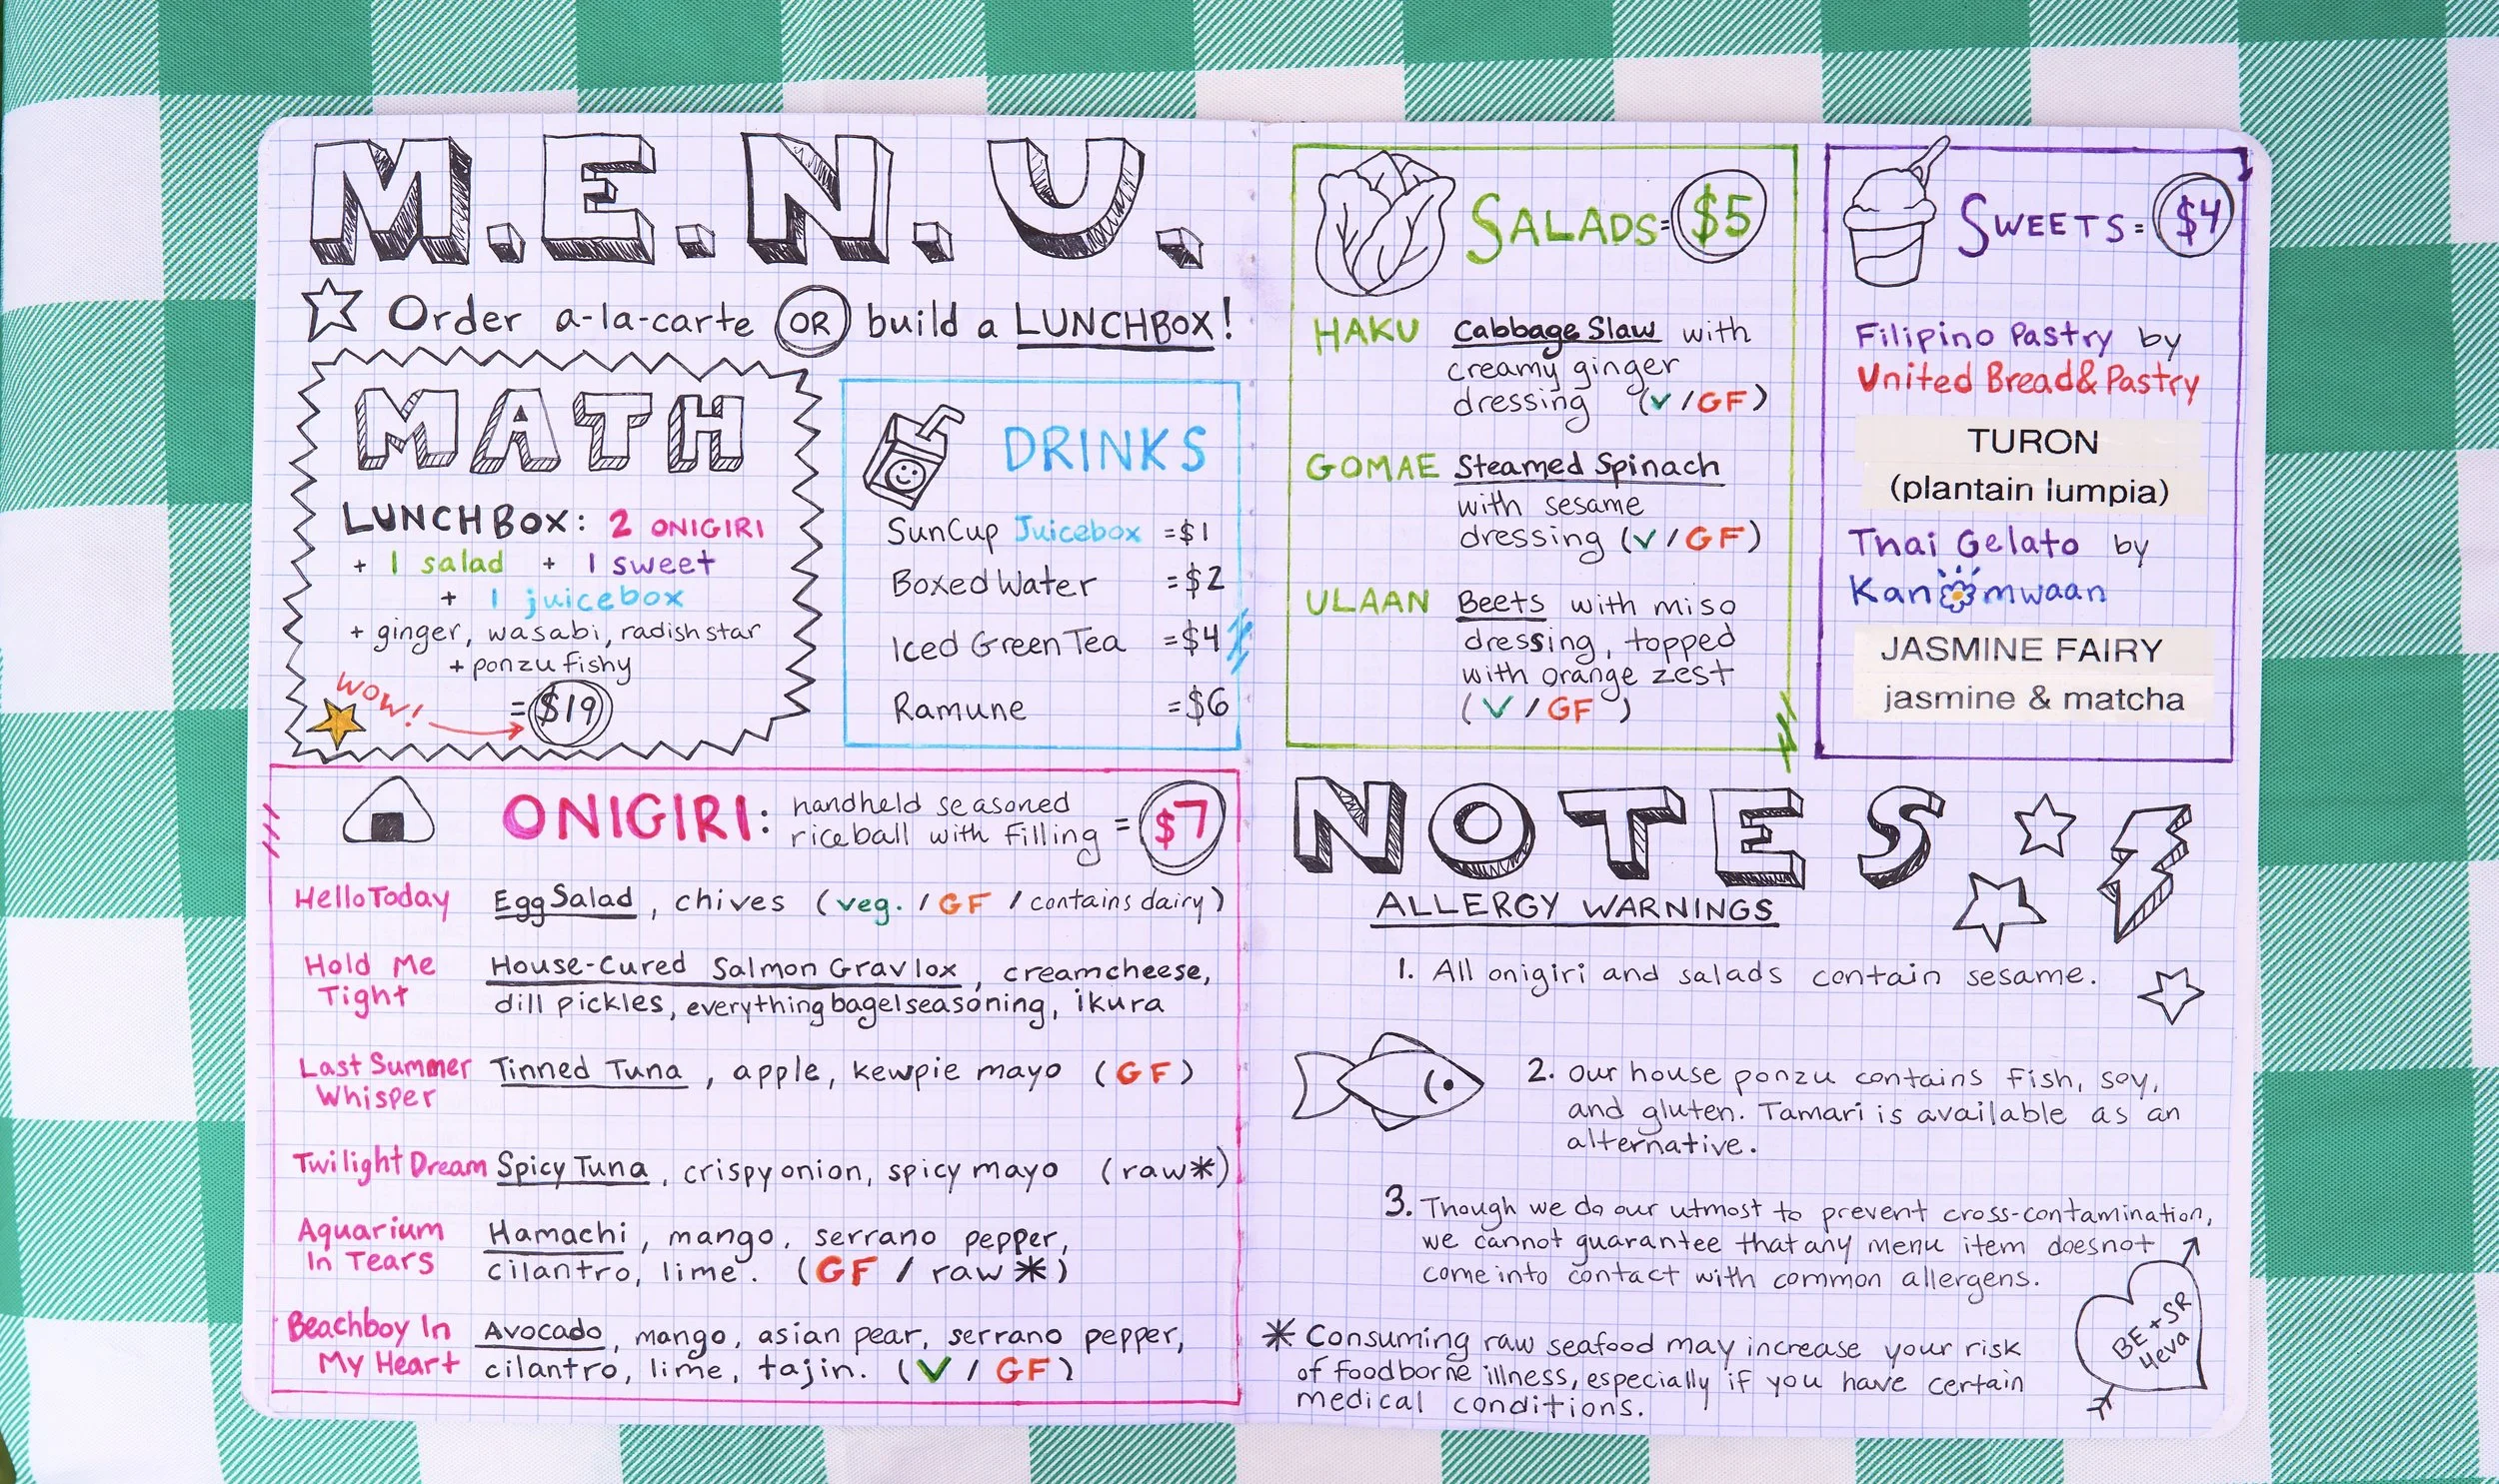 M.E.N.U.
Order a-la-carte OR build a LUNCHBOX!
MATH
LUNCHBOX: 2 ONIGIRI
+ 1 salad + 1 sweet
+ 1 juicebox
+ ginger, wasabi, radish star
+ ponzu fishy
WOW!
= $19
DRINKS
SunCup Juicebox = $1
Boxed Water = $2
Iced Green Tea = $4
Ramune = $6
ONIGIRI: handheld seasoned
rice ball with filling = $7
Hello Today Egg Salad, chives (veg. / GF / contains dairy)
Hold Me House-Cured Salmon Gravlox, creamcheese,
Tight dill pickles, everything bagel seasoning, ikura
Last Summer Tinned Tuna, apple, kewpie mayo (GF)
Whisper
Twilight Dream Spicy Tuna, crispy onion, spicy mayo (raw*)
Aquarium Hamachi, mango, serrano pepper,
In Tears cilantro, lime. (GF / raw*)
Beachboy In Avocado, mango, asian pear, serrano pepper,
My Heart cilantro, lime, tajin. (V / GF)
SALADS = $5
HAKU Cabbage Slaw with
creamy ginger
dressing (V/GF)
GOMAE Steamed Spinach
with sesame
dressing (V/GF)
ULAAN Beets with miso
dressing, topped
with orange zest
(V/GF)
SWEETS = $4
Filipino Pastry by
United Bread & Pastry
TURON
(plantain lumpia)
Thai Gelato by
Kanomwaan
JASMINE FAIRY
jasmine & matcha
NOTES
ALLERGY WARNINGS
1. All onigiri and salads contain sesame.
2. Our house ponzu contains fish, soy,
and gluten. Tamari is available as an
alternative.
3. Though we do our utmost to prevent cross-contamination,
we cannot guarantee that any menu item does not
come into contact with common allergens.
* Consuming raw seafood may increase your risk
of foodborne illness, especially if you have certain
medical conditions.
BE + SR
4eva